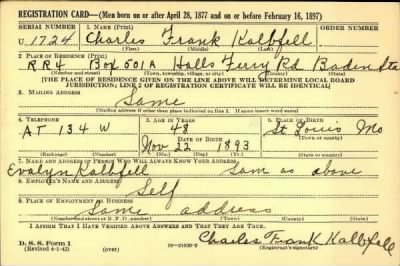 REGISTRATION CARD—(Men born on or after April 28, 1877 and on or before February 16, 1897)
SERIAL NUMBER 1. NAME (Print) ORDER NUMBER
U 1724 Charles Frank Kalbfell
(First) (Middle) (Last)
2. PLACE OF RESIDENCE (Print)
RR4 Box 501A Halls Ferry Rd Baden Sta
(Number and street) (Town, township, village, or city) (County) (State)
[THE PLACE OF RESIDENCE GIVEN ON THE LINE ABOVE WILL DETERMINE LOCAL BOARD
JURISDICTION; LINE 2 OF REGISTRATION CERTIFICATE WILL BE IDENTICAL]
3. MAILING ADDRESS
Same
(Mailing address if other than place indicated on line 2. If same insert word same)
4. TELEPHONE 5. AGE IN YEARS 6. PLACE OF BIRTH
AT 134 W 48 St Louis Mo
DATE OF BIRTH (Town or county)
Nov 22 1893
(Exchange) (Number) (Mo.) (Day) (Yr.) (State or country)
7. NAME AND ADDRESS OF PERSON WHO WILL ALWAYS KNOW YOUR ADDRESS
Evalyn Kalbfell Same as above
8. EMPLOYER'S NAME AND ADDRESS
Self
9. PLACE OF EMPLOYMENT OR BUSINESS
Same address
(Number and street or R. F. D. number) (Town) (County) (State)
I AFFIRM THAT I HAVE VERIFIED ABOVE ANSWERS AND THAT THEY ARE TRUE.
D. S. S. Form 1 Charles Frank Kalbfell
(Revised 4-1-42) (over) 16—21630-2 (Registrant's signature)